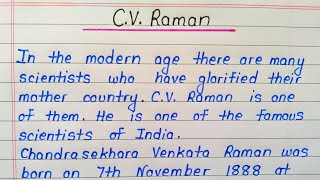 C.V. Raman
In the modern age there are many
scientists who have glorified their
mother country. C.V. Raman is one
of them. He is one of the famous
scientists of India.
Chandrasekhara Venkata Raman was
born on 7th November 1888 at